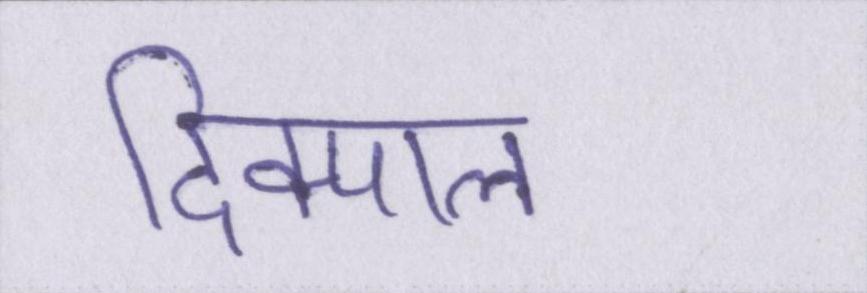 दिक्पाल